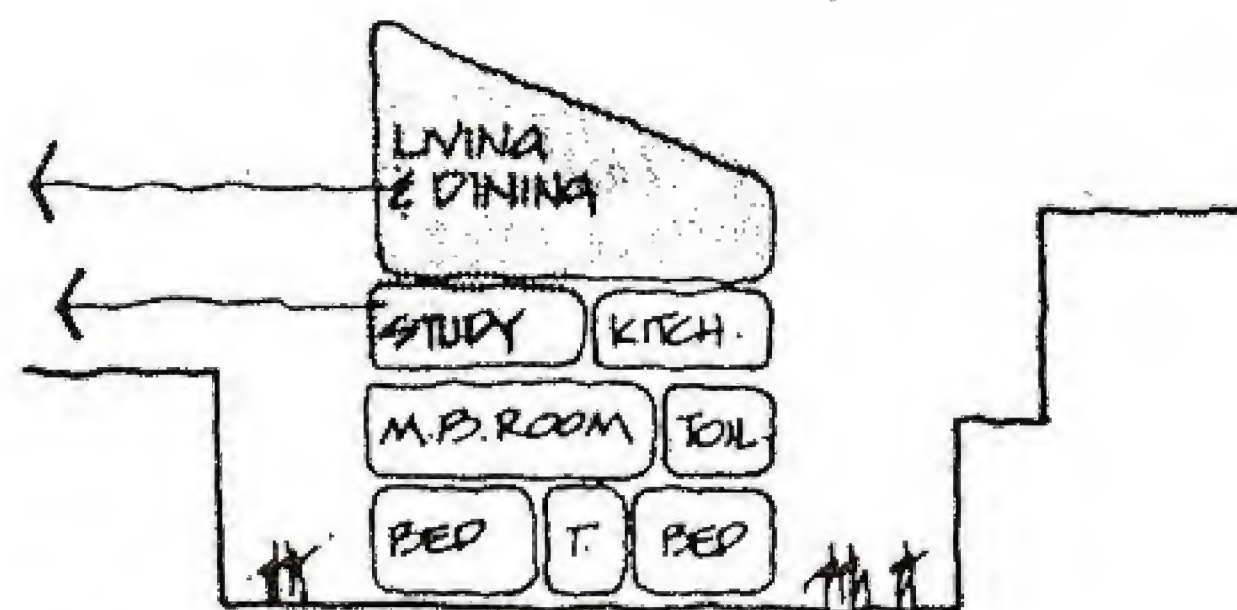 LIVING
& DINING
STUDY
KITCH.
M.B. ROOM
TOIL.
BED
T.
BED